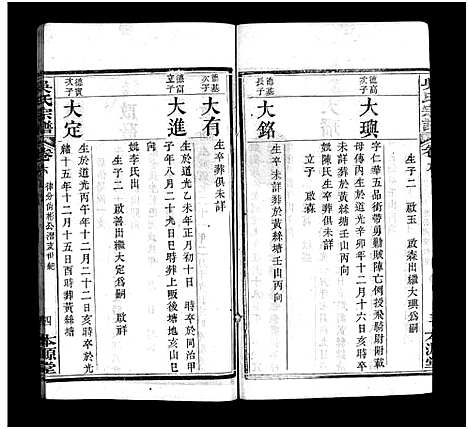 生子二 啟玉 啟森出繼大璵爲嗣
德高次子
大璵
字仁華五品銜帶勇勦賊陣亡例授飛騎尉附載
母傳內生於道光辛卯年十二月十六日亥時卒
未詳葬於黃絲塘壬山丙向
娶陳氏生卒葬俱未詳
立子 啟森
德基長子
大銘
生卒未詳葬於黃絲塘壬山丙向
德基次子
大有
生卒葬俱未詳
德富立子
大進
生於道光乙未年正月初十日 時卒於同治甲
子年八月二十九日巳時葬上畈後塘地亥山巳
向
娶李氏出
生子二 啟善出繼大定爲嗣 啟祥
德實次子
大定
生於道光丙午年十二月二十二日亥時卒於光
緒十五年十二月十五日酉時葬黃絲塘
吳氏宗譜
卷六
四 本源堂